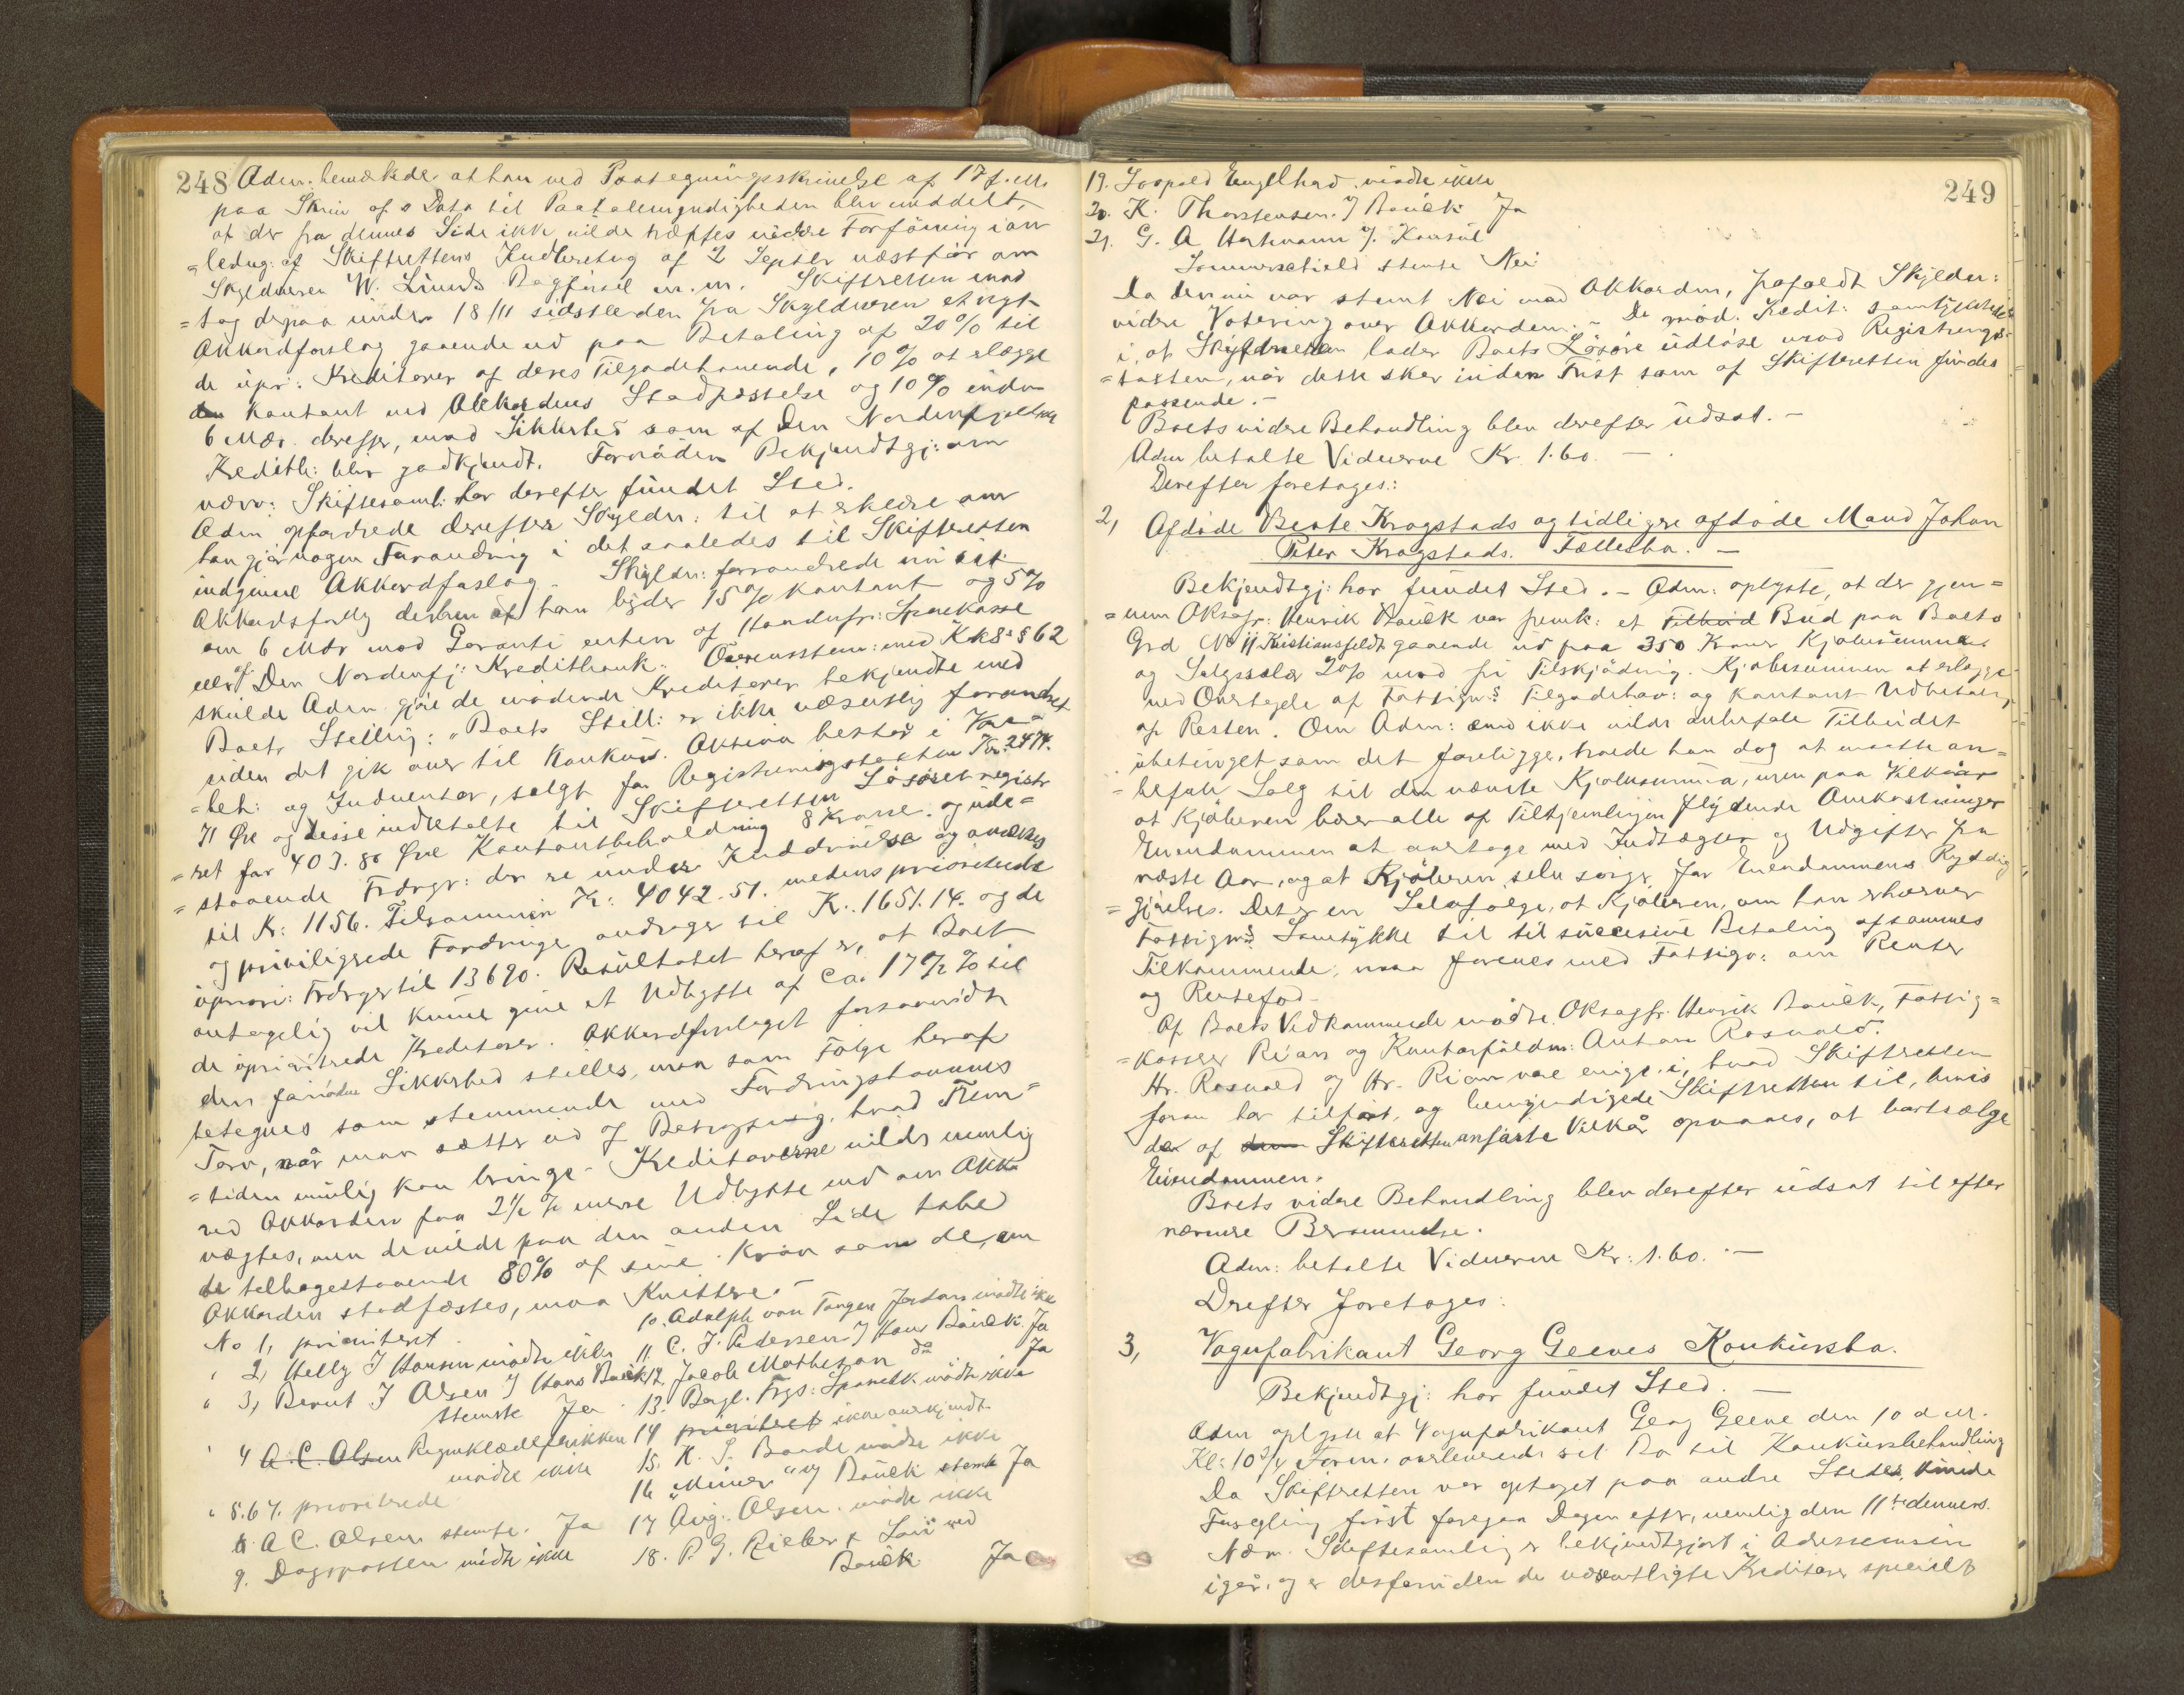 248 Adm. bemærkede at han ved Paategningsskrivelse af 17 f. M.
paa Skriv. af s Dato til Paatalemyndigheden blev meddelt,
at der fra dennes Side ikke vilde træffes videre Forföining i an
=ledng. af Skifterettens Indberetng af 2 Septbr næstfór om
Skyldneren W. Lunds Bogförsel m. m. Skifteretten mod
=tog derpaa under 18/11 sidstleden fra Skyldneren et nyt
Akkordforslag gaaende ud paa Betaling af 20 % til
de upr: Kreditorer af deres Tilgodehavende, 10 % at erlægge
kontant ved Akkordens Stadfæstelse og 10 % inden
6 Mdr. derefter, mod Sikkerhed som af Den Nordenfjeldske
Kreditb: blev godkjendt. Fornöden Bekjendtgj: om
nærv: Skiftesaml: har derefter fundet Sted.
Adm opfordrede derefter Skyldn: til at erklære om
han gjör nogen Forandring i det saaledes til Skifteretten
indgivne Akkordforslag. Skyldn: forandrede nu sit
Akkordsforslg derhen at han byder 15 % kontant og 5 %
om 6 Mdr mod Garanti enten af Haandvfr: Sparekasse
eller af Den Nordenfj: Kreditbank. Overensstem: med Kkl: § 62
skulde Adm. gjöre de mödende Kreditorer bekjendte med
Boets Stilling: "Boets Still: er ikke væsentlig forandret
siden det gik over til Konkurs. Aktiva bestod i Vare=
=beh: og Inventar, solgt for Registreringstakten Kr. 2474.
71 Öre og disse indbetalte til Skifteretten Lösöret registr
=ret for 403. 80 Öre Kontantbeholdning 8 Kroner. og ude=
=staaende Fordrgr: der er under Inddrivelse og anslaaes
til Kr: 1156. Tilsammen Kr: 4042.51. medens prioriterede
og priviligerede Fordringer andrager til Kr. 1651.14. og de
uprior: Fordrgr til 13690. Resultatet heraf er, at Boet
antagelig vil kunne give et Udbytte af ca. 17 1/2 % til
de uprioriterede Kreditorer. Akkordforslaget forsaavidt
den fornödne Sikkerhed stilles, maa som Fölge heraf
betegnes som stemmende med Fordringshavernes
Tarv, når man sætter ud af Betragtning, hvad Frem=
=tiden mulig kan bringe. Kreditorerne vilde nemlig
ved Akkorden faa 2 1/2 % mere Udbytte end om Akk
nægtes, men de vilde paa den anden Side tabe
de tilbagestaaende 80 % af sine Krav som de, om
Akkorden stadfæstes, maa Kvittere.
No 1, prioriteret.
" 2, Helly J Hansen mödte ikke
" 3, Bernt J Olsen J Hans Bauck
stemte Ja
" 4 A. C. Olsen Regnklædefabrikken
mödte ikke
" 5.6 7. prioriterede
8. A C. Olsen stemte. Ja
9. Dagsposten mödte ikke
10. Adolph von Tangen Jordan mödte ikke
11. C. J. Pedersen J Hans Bauck. Ja
12. Jacob Matheson do Ja
13. Bergl. Frgs: Sparebk. mödte ikke
14 prioriteret ikke anerkjendt
15. K. S. Baade mödte ikke
16 "Minerva" v/ Bauck stemte Ja
17 Aug. Olsen. mödte ikke
18. P. G. Rieber & Sön ved
Bauck Ja
249
19. Leopold Engelhard. mödte ikke
20. K. Thorstensen. J Bauck Ja
21. G. A Hartmann J. Konsul
Sommerschield stemte Nei
Da der nu var stemt Nei mod Akkorden, frafaldt Skyldn:
videre Votering over Akkorden. - De möd. Kredit: samtykkede
i, at Skyldneren lader Boets Lösöre udlöse mod Registrerings=
=taksten, når dette sker inden Frist som af Skifteretten findes
passende. -
Boets videre Behandling blev derefter udsat. -
Adm betalte Vidnerne Kr. 1.60. -
Derefter foretoges:
2, Afdöde Beate Krogstads og tidligere afdöde Mand Johan
Peter Krogstads. Fællesbo. -
Bekjendtgj: har fundet Sted. - Adm: oplyste, at der gjen=
=nem Oksagfr: Henrik Bauck var fremk: et Tilbud Bud paa Boets
Grd No 11 Kristiansfeldt gaaende ud paa 350 Kroner Kjöbesumma
og Salgssalær 2 % mod fri Tilskjödning. Kjöbesummen at erlægge
ved Overtagelse af Fattigvs. Tilgodehav: og Kontant Udbetaling
af Resten. Om Adm: end ikke vilde anbefale Tilbudet
ubetinget som det foreligger, troede han dog at maatte an=
=befale Salg til den nævnte Kjöbesumma, men paa Vilkaar
at Kjöberen bærer alle af Tilhjemlingen flydende Omkostninger
Eiendommen at overtage med Indtægter og Udgifter fra
næste Aar, og at Kjöberen selv sörger for Eiendommens Ryddig
=gjörelse. Det er en Selvfölge, at Kjöberen, om han erhverver
Fattigvs. Samtykke til til succesive Betaling af sammes
Tilkommende, maa forenes med Fattigv: om Renter
og Rentefod.
Af Boets Vedkommende mödte Oksagfr. Henrik Bauck, Fattig=
=kasser Rian og Kontorfuldm: Anton Rosvold.
Hr. Rosvold og Hr. Rian var enige i, hvad Skifteretten
foran har tilfört, og bemyndigede Skifteretten til, hvis
de af Skifteretten anförte Vilkår opnaaes, at bortsælge
Eiendommen.
Boets videre Behandling blev derefter udsat til efter
nærmere Berammelse.
Adm: betalte Vidnerne Kr: 1.60. -
Derefter foretoges:
3, Vognfabrikant Georg Geeves Konkursbo.
Bekjendtgj: har fundet Sted. -
Adm oplyste at Vognfabrikant Georg Geeve den 10 d M.
Kl: 10 3/4 Form. overleverede sit Bo til Konkursbehandling
Da Skifteretten var optaget paa andre Steder, kunde
Forsegling först foregaa Dagen efter, nemlig den 11te dennes.
Nærv. Skiftesamling er bekjendtgjort i Adresseavisen
igår, og er desforuden de væsentligste Kreditorer specielt